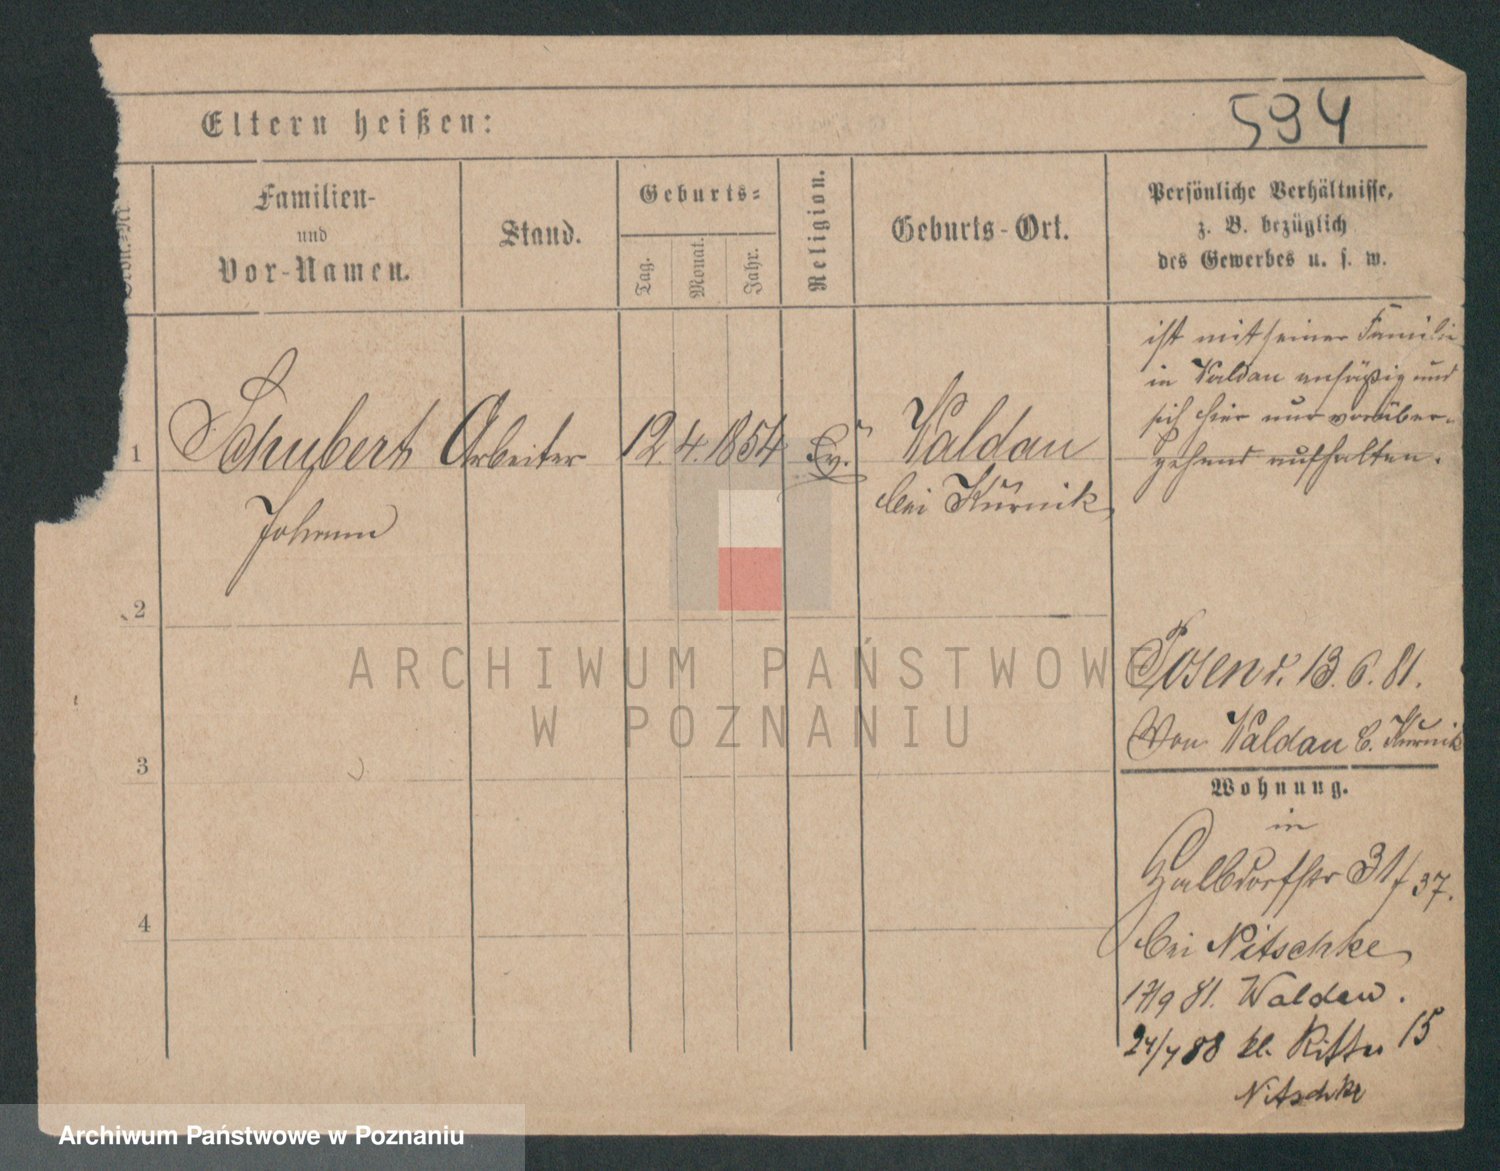 594
Eltern heißen:
Familien-
und
Vor-Namen.
Stand.
Geburts-
Tag.
Monat.
Jahr.
Religion.
Geburts-Ort.
Persönliche Verhältnisse,
z. B. bezüglich
des Gewerbes u. s. w.
1
Schubert
Johann
Arbeiter
12. 4. 1854
Ev.
Waldau
bei Kurnik
ist mit seiner Familie
in Waldau ansäßig und
sich hier nur vorüber-
gehend aufhalten.
2
Posen d. 13. 6. 81.
Von Waldau b. Kurnik
3
Wohnung.
in
Halbdorfstr 31/37.
4
bei Nitschke
17/9 81. Waldau.
24/7 88 kl. Ritter 15
Nitschke
ARCHIWUM PAŃSTWOWE
W POZNANIU
Archiwum Państwowe w Poznaniu